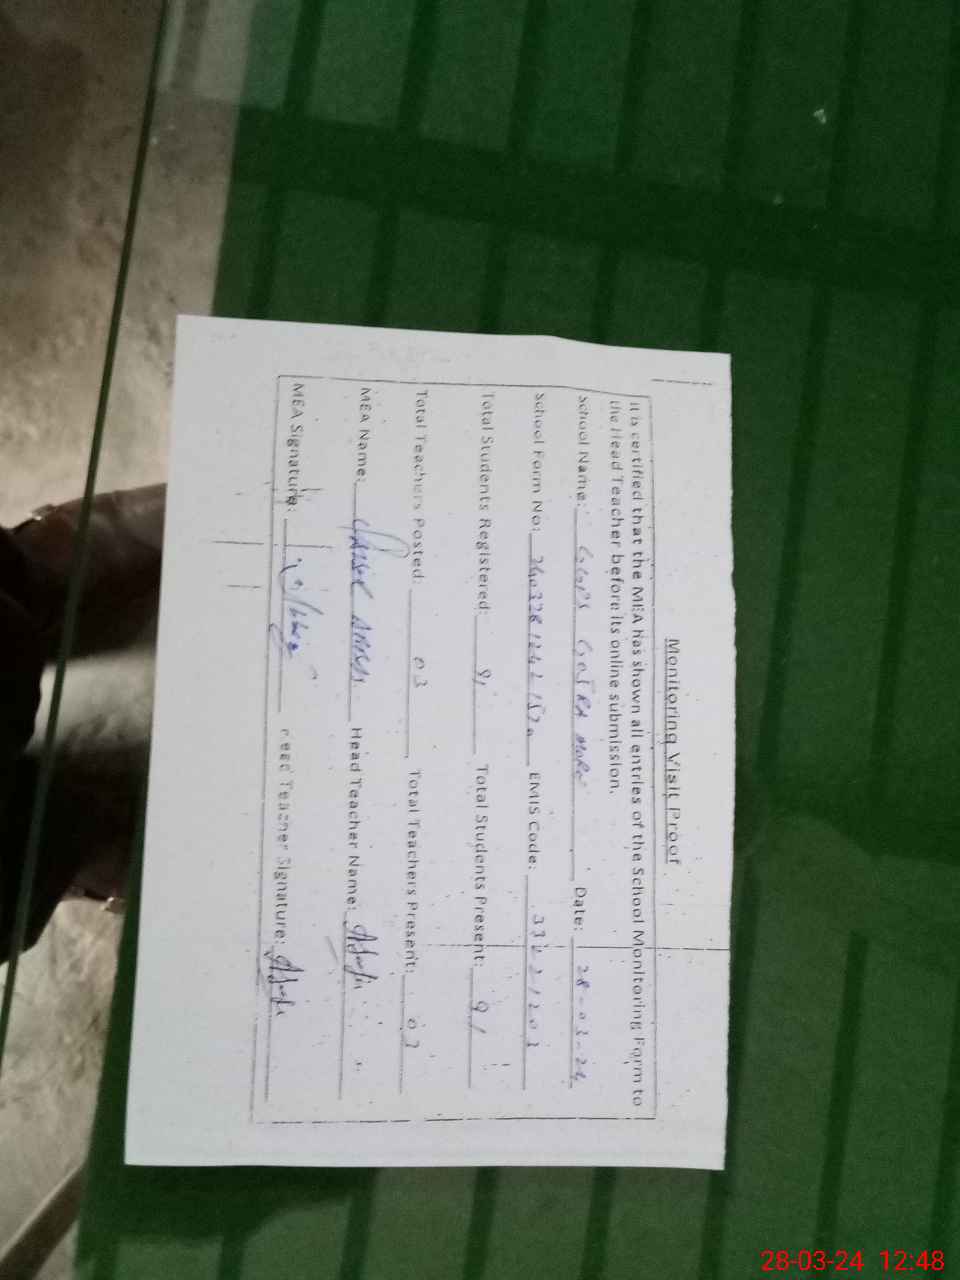 Monitoring Visit Proof
It is certified that the MEA has shown all entries of the School Monitoring Form to
the Head Teacher before its online submission.
School Name: GGPS Date: 28-03-24
School Form No: EMIS Code:
Total Students Registered: 91 Total Students Present: 91
Total Teachers Posted: 03 Total Teachers Present: 03
MEA Name: Head Teacher Name:
MEA Signature: Head Teacher Signature:
28-03-24 12:48